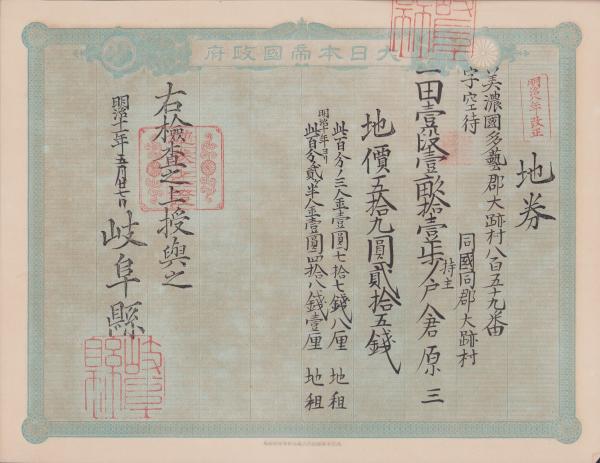 大日本帝國政府
明治八年改正
地券
美濃國多藝郡大跡村八百五十九番
字空待
同國同郡大跡村
一田壹段壹畝拾壹歩
持主
倉原三
地價五拾九圓貳拾五錢
此百分ノ三金壹圓七拾七錢八厘 地租
明治十年ヨリ
此百分貳半金壹圓四拾八錢壹厘 地租
右檢査之上授與之
明治十一年五月廿七日
岐阜縣
岐阜縣